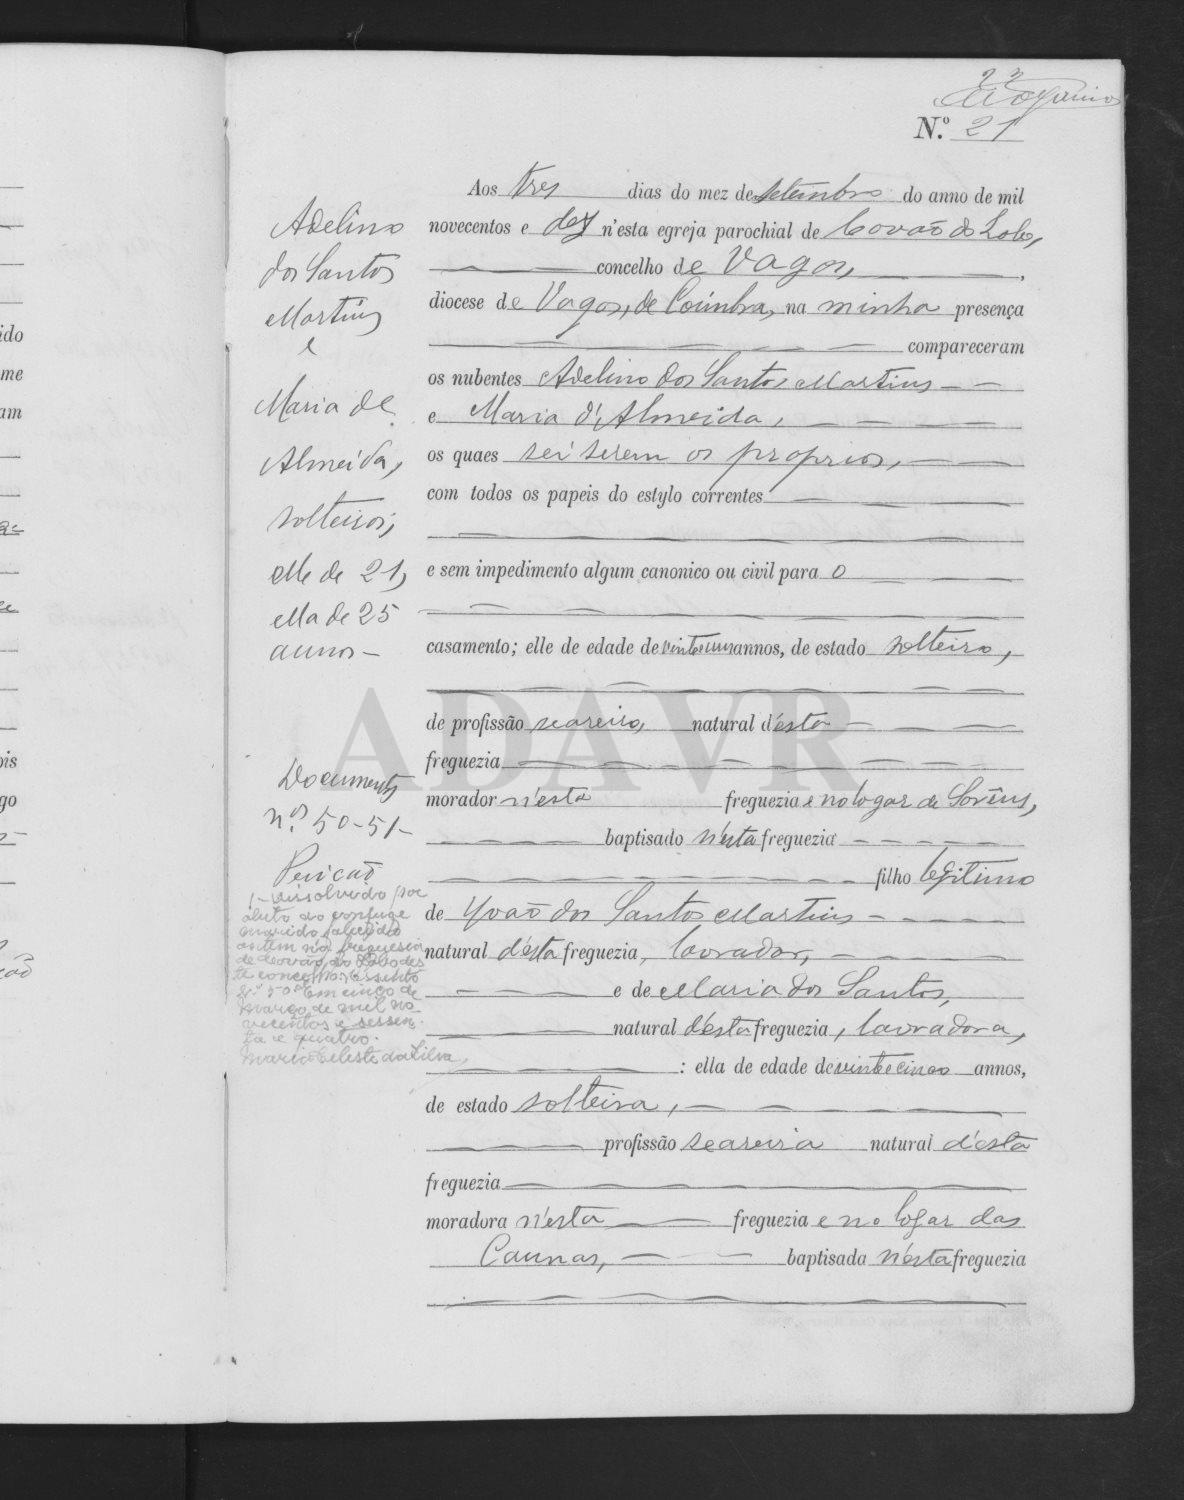 22
N.º 21
Aos tres dias do mez de setembro do anno de mil
novecentos e dez n'esta egreja parochial de Covão do Lobo,
concelho de Vagos,
diocese de Vagos, de Coimbra, na minha presença
compareceram
os nubentes Adelino dos Santos Martins
e Maria d'Almeida,
os quaes sei serem os proprios,
com todos os papeis do estylo correntes
e sem impedimento algum canonico ou civil para o
casamento; elle de edade de vinteeum annos, de estado solteiro,
de profissão seareiro, natural d'esta
freguezia
morador n'esta freguezia e no logar de
baptisado n'esta freguezia
filho legitimo
de João dos Santos Martins
natural d'esta freguezia, lavrador,
e de Maria dos Santos,
natural d'esta freguezia, lavradora,
: ella de edade de vinteecinco annos,
de estado solteira,
profissão seareira natural d'esta
freguezia
moradora n'esta freguezia e no logar das
baptisada n'esta freguezia
Adelino
dos Santos
Martins
e
Maria de
Almeida,
solteiros;
elle de 21,
ella de 25
annos
Documentos
n.os 50-51-
1- Dissolvido por
óbito do conjuge
marido falecido
ontem na freguesia
de Covão do Lobo des
te concelho. Assento
n.º 50. Em cinco de
Março de mil no
vecentos e sessen-
ta e quatro.
Maria Celeste da Silva
ADAVR
ido
me
am
ois
go